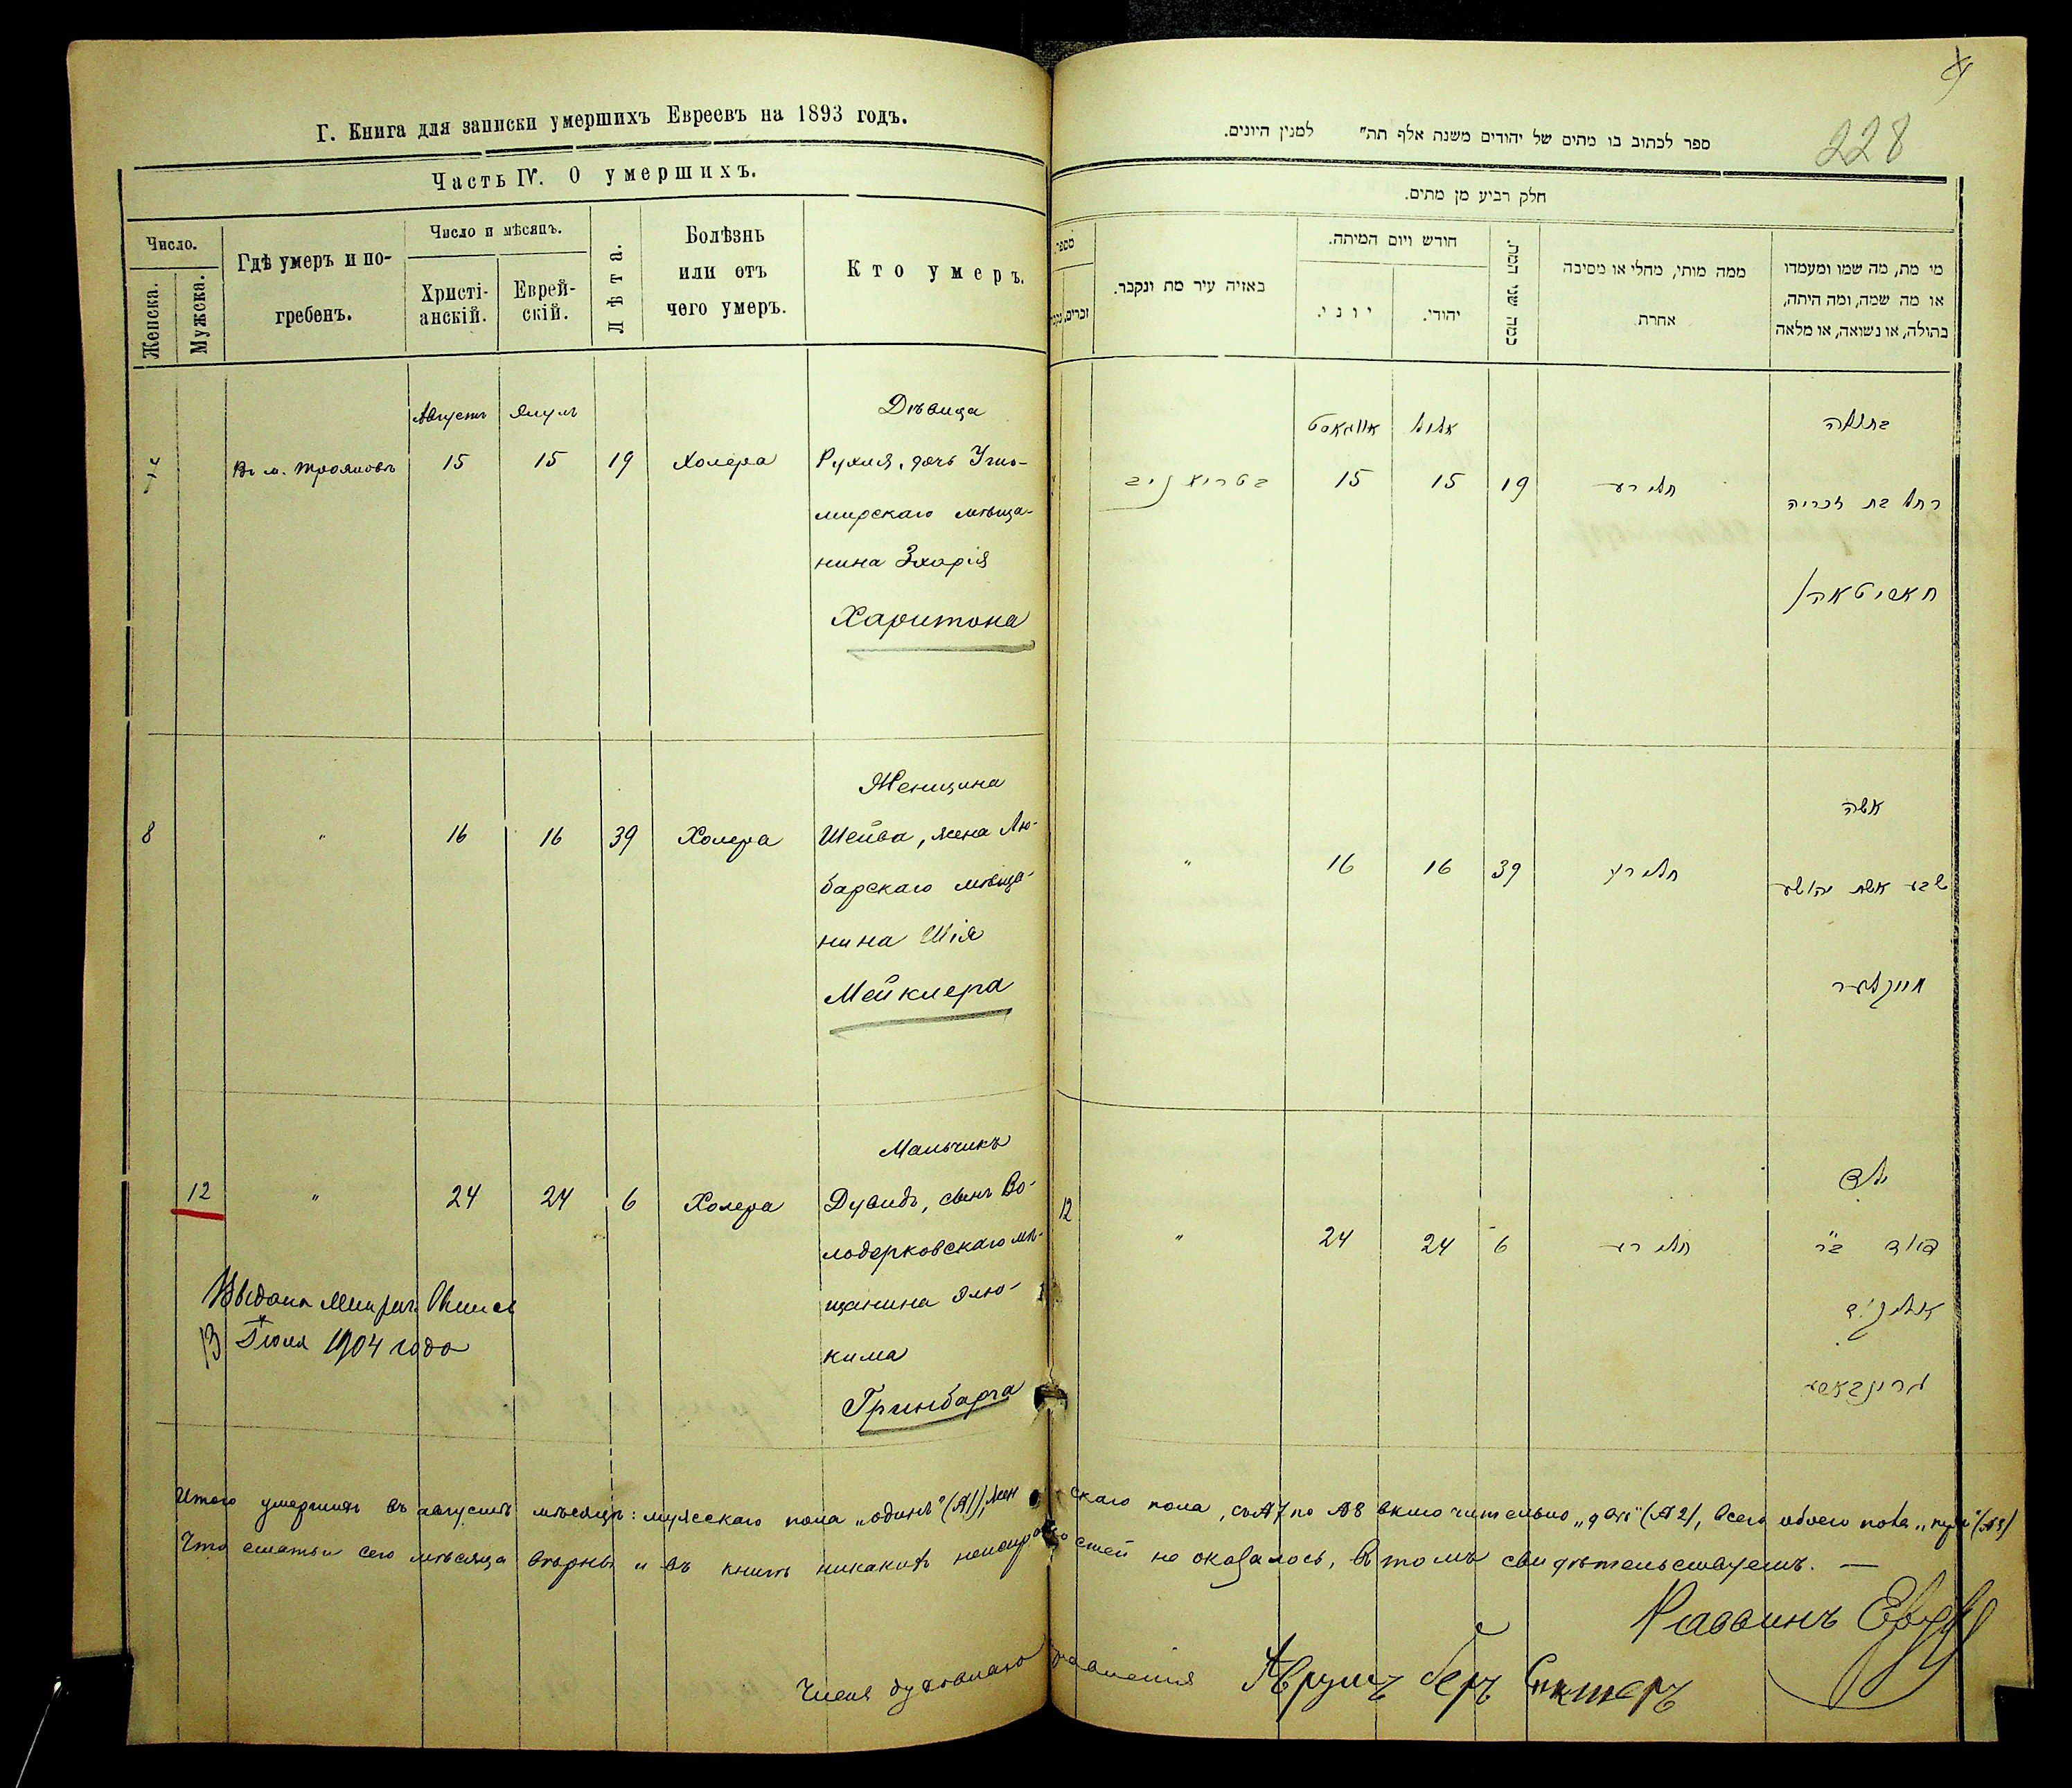 Г. Книга для записки умершихъ Евреевъ на 1893 годъ.
Часть IV. О умершихъ.
Число.
Женска.
Мужска.
Гдѣ умеръ и по-
гребенъ.
Число и мѣсяцъ.
Христі-
анскій.
Еврей-
скій.
Лѣта.
Болѣзнь
или отъ
чего умеръ.
Кто умеръ.
Августъ Элулъ Дѣвица
7 Въ м. Трояновѣ 15 15 19 Холера Рухля, дочь Жито-
мирскаго мѣща-
нина Зхарія
Харитона
Женщина
8 " 16 16 39 Холера Шейва, жена Лю-
барскаго мѣща-
нина Шія
Мейклера
Мальчикъ
12 " 24 24 6 Холера Дувидъ, сынъ Во-
лодерковскаго мѣ-
щанина Элю-
кима
Гринбарга
Выдана Метрич.
13 Іюля 1904 года
228
ספר לכתוב בו מתים של יהודים משנת אלף תת" למנין היונים.
חלק רביע מן מתים.
מספר
זכרים, נקבות
באזיה עיר מת ונקבר.
חורש ויום המיתה.
יוני.
יהודי.
כמה שני המת.
ממה מותי, מחלי או מסיבה
אחרת
מי מת, מה שמו ומעמדו
או מה שמה, ומה היתה,
בתולה, או נשואה, או מלאה
אווגאסט אלול בתולה
בטריאניב 15 15 19 חלירע רחל בת זכריה
חאריטאהן
אשה
" 16 16 39 חלירע שבע אשת יהושע
מייקלער
ילד
12 " 24 24 6 חלירע דוד ב"ר
אליקים
גרינבארג
Итого умершихъ въ августѣ мѣсяцѣ: мужескаго пола „одинъ" (№1), женскаго пола, съ №7 по №8 включительно „двѣ" (№2), всего обоего пола „три" (№3)
Что статьи сего мѣсяца вѣрны и въ книгѣ никакихъ неисправностей не оказалось, въ томъ свидѣтельствуемъ. —
Раввинъ
Членъ духовнаго правленія Аврумъ Беръ Спекторъ